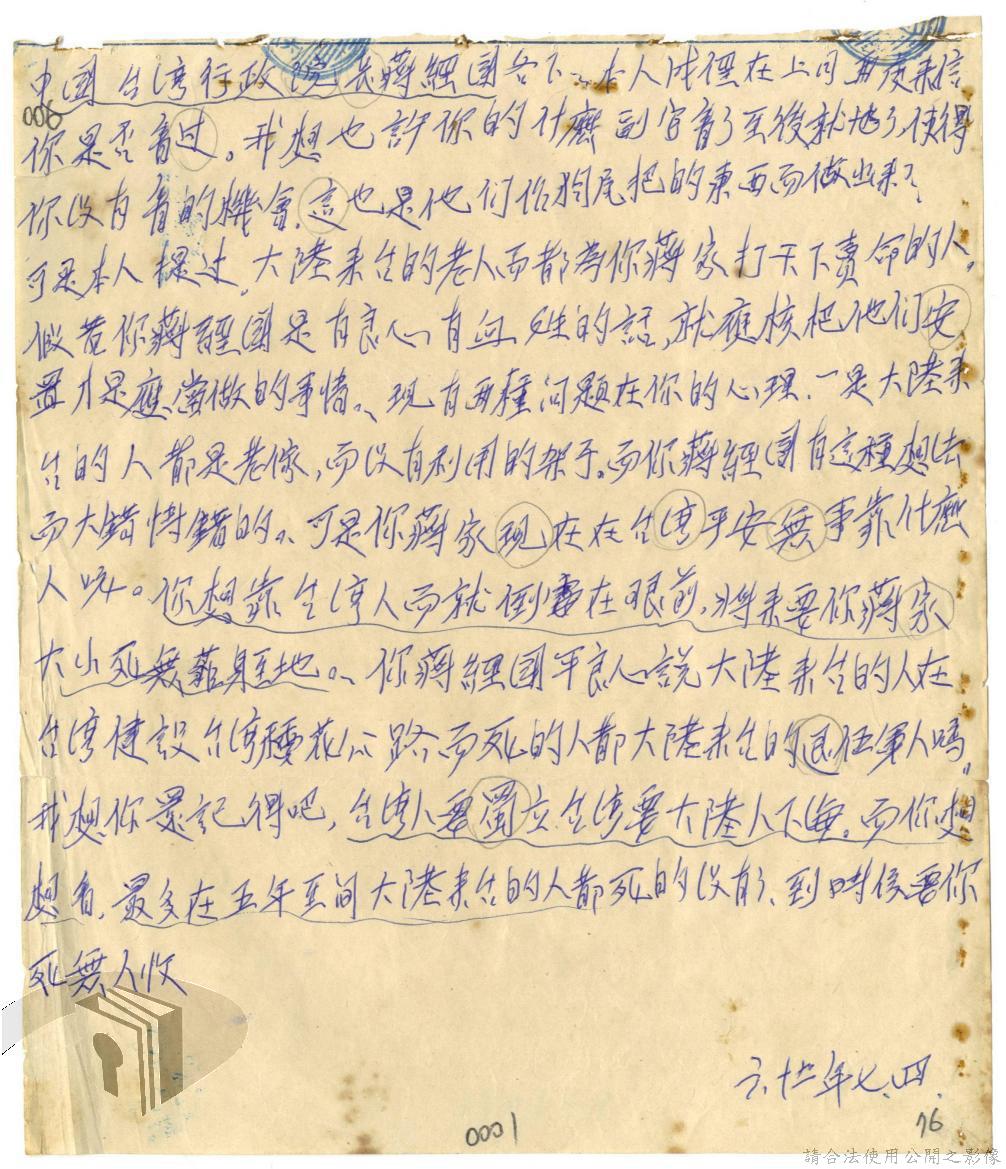 中國台湾行政院长蔣經國各下、本人成經在上月 来信
006
你是否看过。我想也許你的什麽副官看了至後就 了使得
你没有看的機會,這也是他们 狗尾把的東西而做出来?
可是本人提过,大陸来台的老人而都為你蔣家打天下賣命的人。
假若你蔣經國是有良心有血性的話,就應核把他们安
置才是應當做的事情。、現有两種问题在你的心理.一是大陸来
台的人都是老 ,而没有利用的架子。而你蔣經國有這種想法
而大錯 錯的。、可是你蔣家現在在台湾平安無事靠什麽
人呀。你想靠台湾人而就倒霉在眼前,将来要你蔣家
大小死無葬身至地。、你蔣經國平良心說大陸来台的人在
台湾健設台湾種花公路而死的人都大陸来台的退伍軍人嗎。
我想你還記得吧,台湾人要獨立台湾要大陸人下海。而你想
想看.最多在五年至间大陸来台的人都死的没有了.到时候要你
死無人收
六.十二年七.四.
0001
76
請合法使用公開之影像